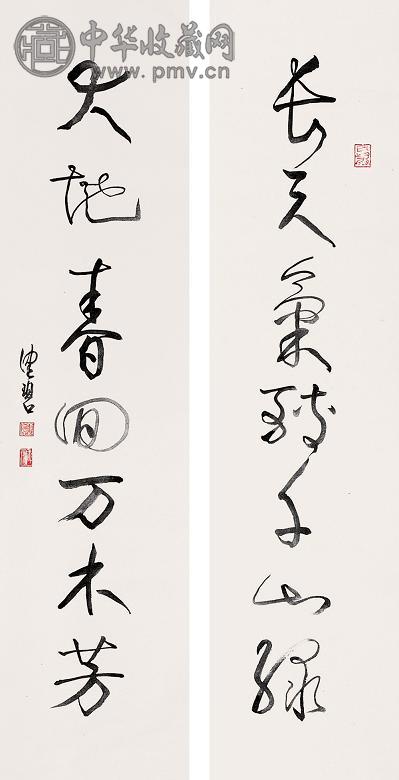 中华收藏网
www.pmv.cn
长天氣转千山绿
大地春回万木芳
健碧